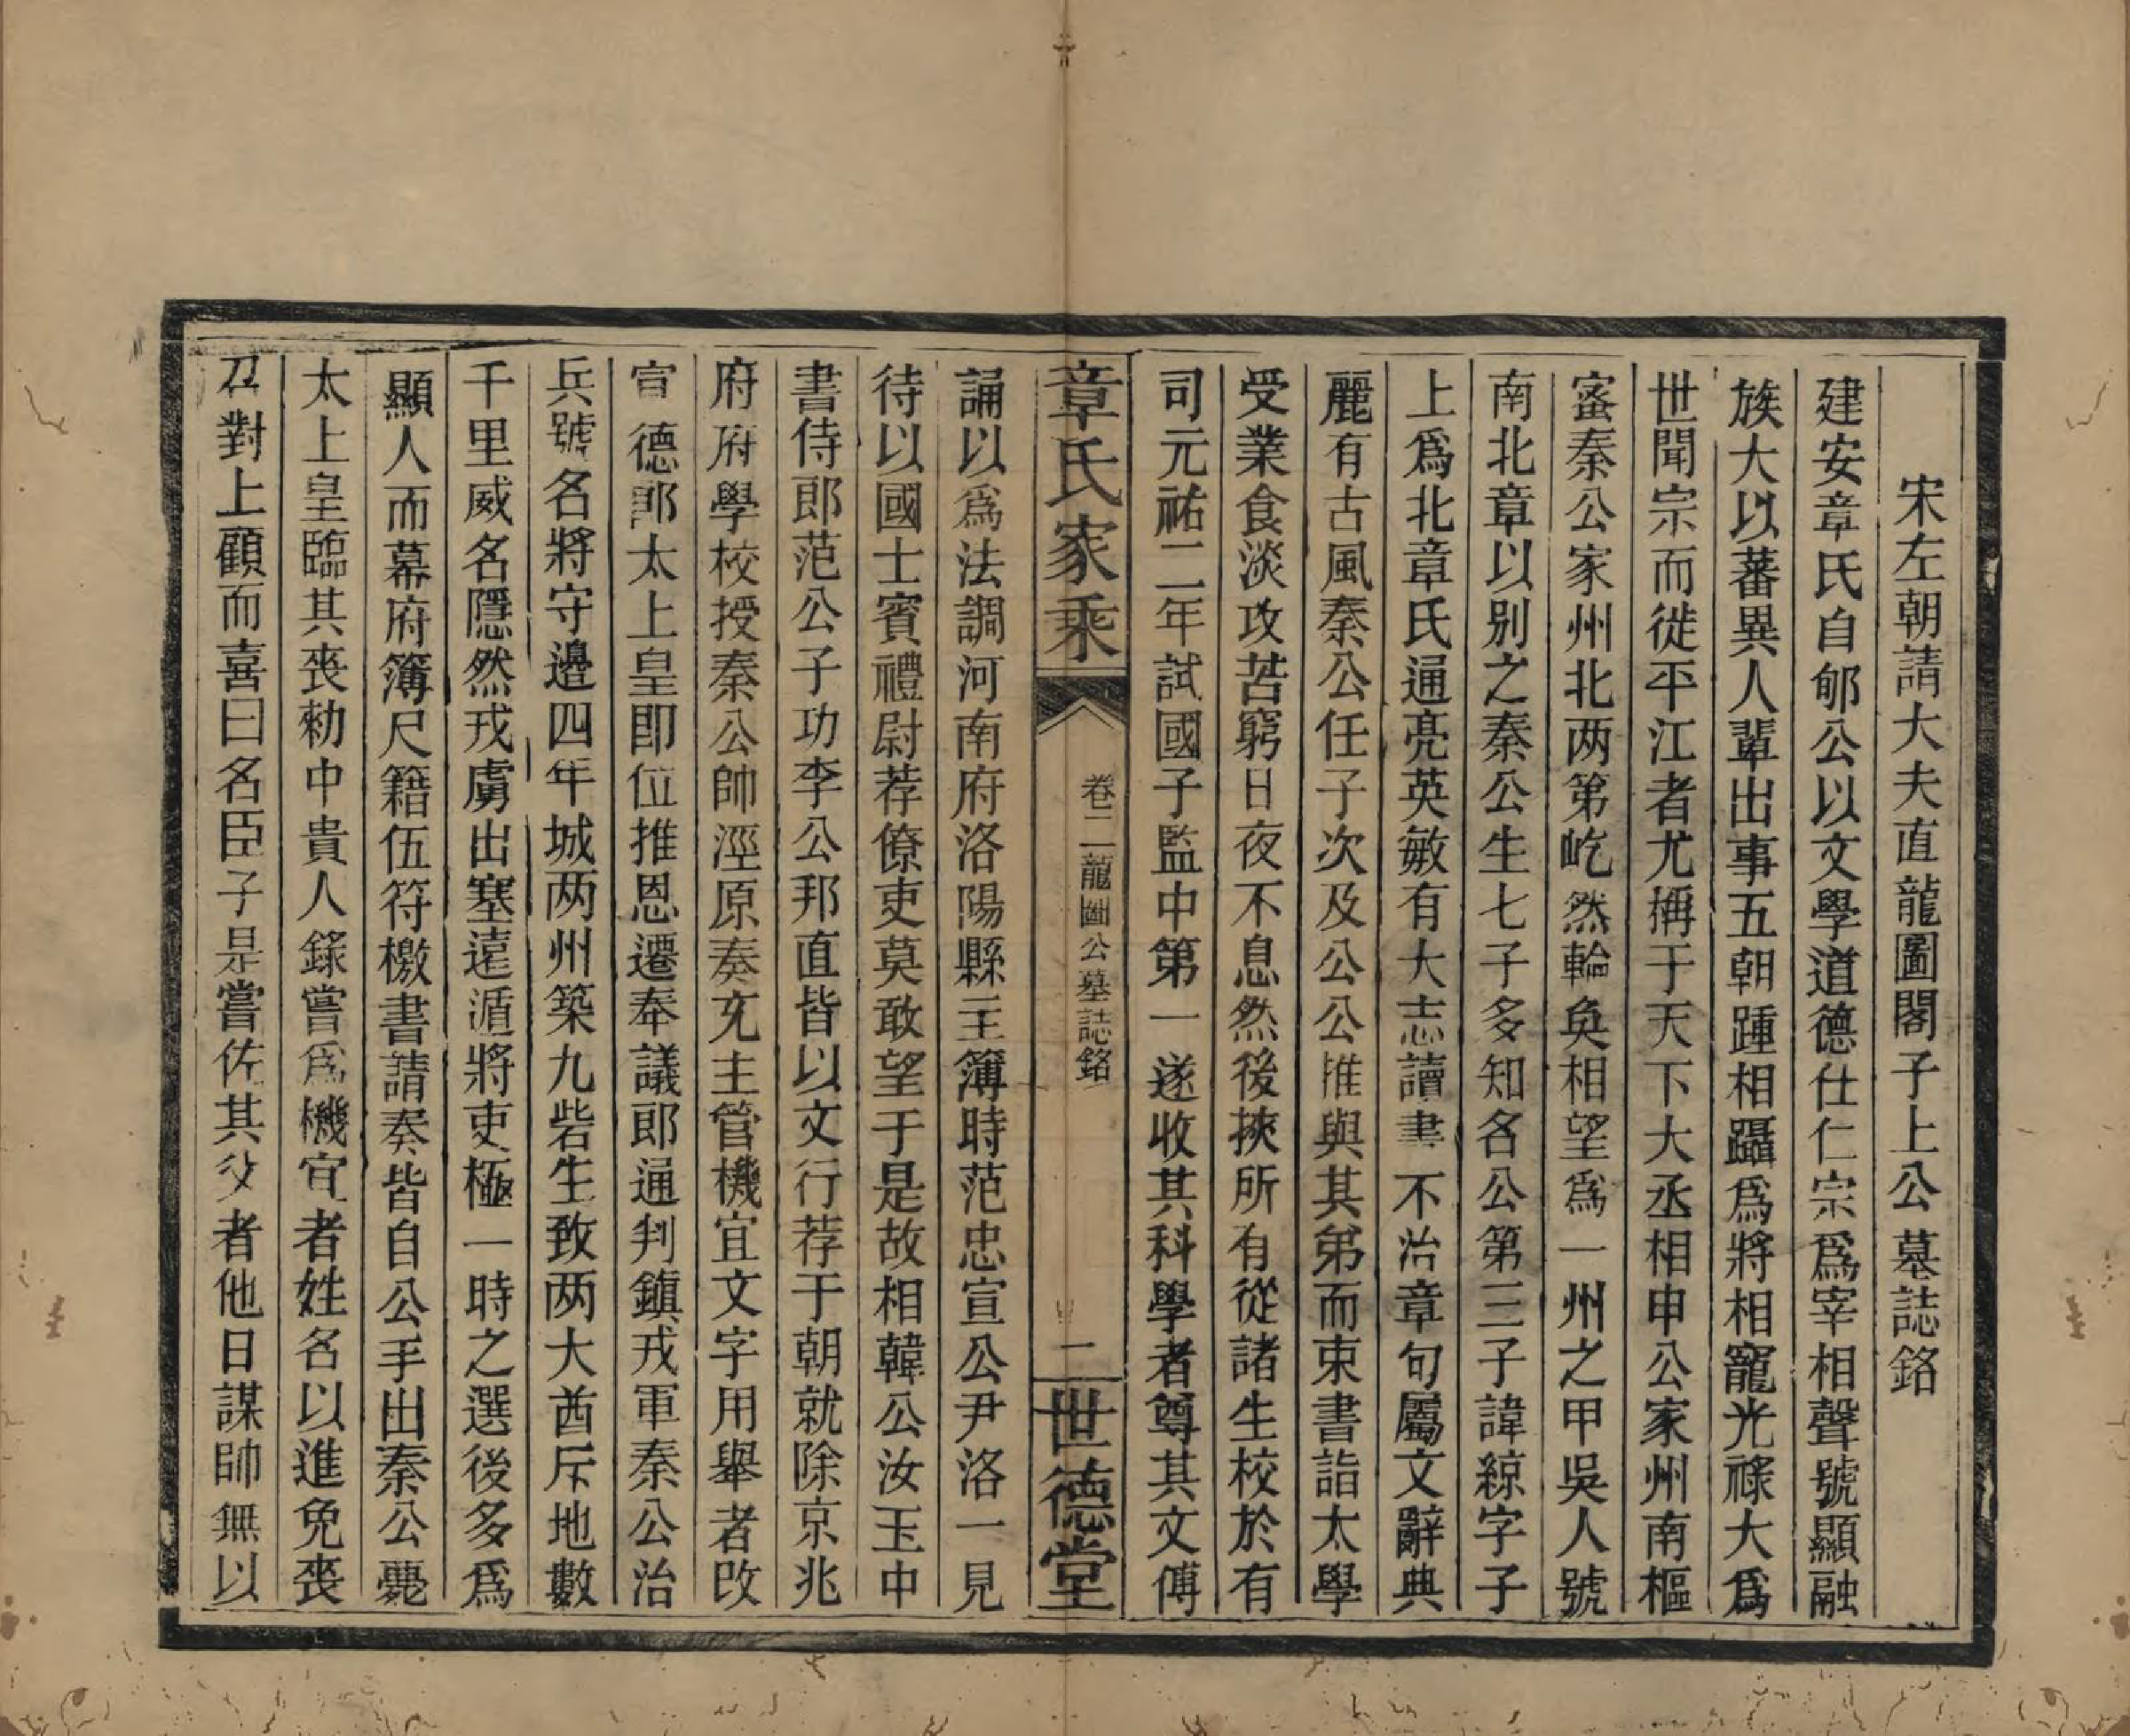 宋左朝請大夫直龍圖閣子上公墓誌銘
建安章氏自郇公以文學道德仕仁宗爲宰相聲號顯融
族大以蕃異人輩出事五朝踵相躡爲將相寵光祿大爲
世聞宗而徙平江者尤稱于天下大丞相申公家州南樞
宻秦公家州北两第屹然輪奐相望爲一州之甲吳人號
南北章以别之秦公生七子多知名公第三子諱綜字子
上爲北章氏通亮英敏有大志讀書不治章句屬文辭典
麗有古風秦公任子次及公公推與其弟而束書詣太學
受業食淡攻苦窮日夜不息然後挾所有從諸生校於有
司元祐二年試國子監中第一遂收其科學者尊其文傳
章氏家乘
卷二龍圖公墓誌銘
二
世德堂
誦以爲法調河南府洛陽縣主簿時范忠宣公尹洛一見
待以國士賓禮尉荐僚吏莫敢望于是故相韓公汝玉中
書侍郎范公子功李公邦直皆以文行荐于朝就除京兆
府府學校授秦公帥涇原奏充主管機宜文字用舉者改
宣德郎太上皇即位推恩遷奉議郎通判鎮戎軍秦公治
兵號名將守邉四年城两州築九砦生致两大酋斥地數
千里威名隱然戎虜出塞遠遁將吏極一時之選後多爲
顯人而幕府簿尺籍伍符檄書請奏皆自公手出秦公薨
太上皇臨其喪勑中貴人錄嘗爲機宜者姓名以進免喪
召對上顧而喜曰名臣子是嘗佐其父者他日謀帥無以